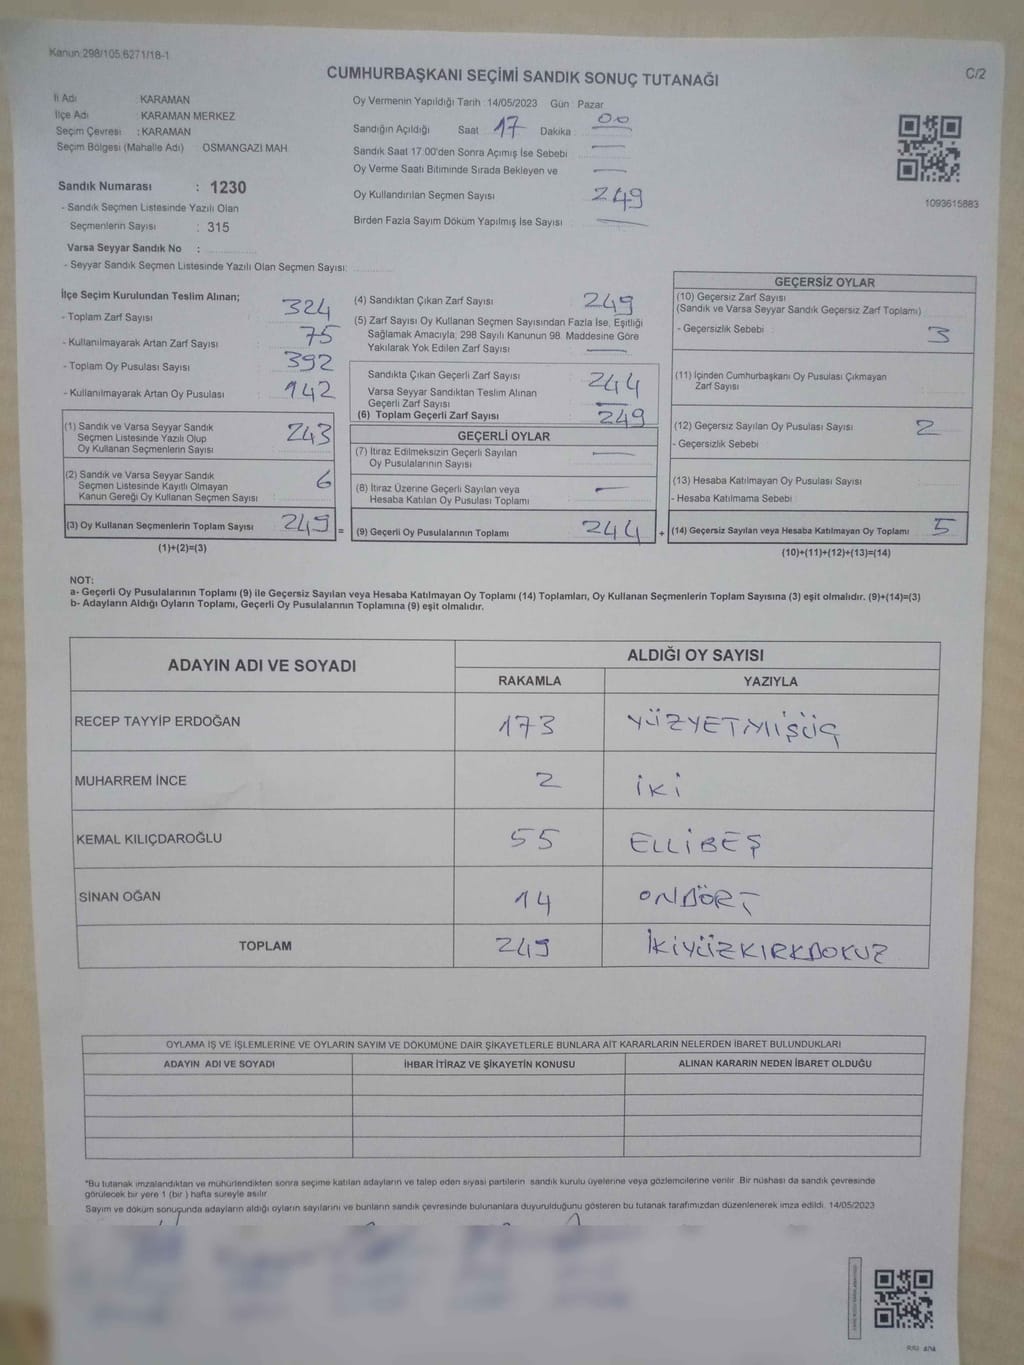 Kanun:298/105,6271/18-1
C/2
CUMHURBAŞKANI SEÇİMİ SANDIK SONUÇ TUTANAĞI
İl Adı : KARAMAN
İlçe Adı : KARAMAN MERKEZ
Seçim Çevresi : KARAMAN
Seçim Bölgesi (Mahalle Adı) OSMANGAZİ MAH.
Sandık Numarası : 1230
- Sandık Seçmen Listesinde Yazılı Olan
Seçmenlerin Sayısı : 315
Varsa Seyyar Sandık No :
- Seyyar Sandık Seçmen Listesinde Yazılı Olan Seçmen Sayısı:
Oy Vermenin Yapıldığı Tarih :14/05/2023 Gün : Pazar
Sandığın Açıldığı Saat 17 Dakika : 00
Sandık Saat 17:00'den Sonra Açımış İse Sebebi
Oy Verme Saati Bitiminde Sırada Bekleyen ve
Oy Kullandırılan Seçmen Sayısı 249
Birden Fazla Sayım Döküm Yapılmış İse Sayısı
1093615883
İlçe Seçim Kurulundan Teslim Alınan;
- Toplam Zarf Sayısı : 324
- Kullanılmayarak Artan Zarf Sayısı : 75
- Toplam Oy Pusulası Sayısı : 392
- Kullanılmayarak Artan Oy Pusulası : 142
(1) Sandık ve Varsa Seyyar Sandık
Seçmen Listesinde Yazılı Olup
Oy Kullanan Seçmenlerin Sayısı 243
(2) Sandık ve Varsa Seyyar Sandık
Seçmen Listesinde Kayıtlı Olmayan
Kanun Gereği Oy Kullanan Seçmen Sayısı 6
(3) Oy Kullanan Seçmenlerin Toplam Sayısı 249 =
(1)+(2)=(3)
(4) Sandıktan Çıkan Zarf Sayısı 249
(5) Zarf Sayısı Oy Kullanan Seçmen Sayısından Fazla İse, Eşitliği
Sağlamak Amacıyla; 298 Sayılı Kanunun 98. Maddesine Göre
Yakılarak Yok Edilen Zarf Sayısı
Sandıkta Çıkan Geçerli Zarf Sayısı 244
Varsa Seyyar Sandıktan Teslim Alınan
Geçerli Zarf Sayısı
(6) Toplam Geçerli Zarf Sayısı 249
GEÇERLİ OYLAR
(7) İtiraz Edilmeksizin Geçerli Sayılan
Oy Pusulalarının Sayısı
(8) İtiraz Üzerine Geçerli Sayılan veya
Hesaba Katılan Oy Pusulası Toplamı
(9) Geçerli Oy Pusulalarının Toplamı 244 +
GEÇERSİZ OYLAR
(10) Geçersiz Zarf Sayısı
(Sandık ve Varsa Seyyar Sandık Geçersiz Zarf Toplamı)
- Geçersizlik Sebebi 3
(11) İçinden Cumhurbaşkanı Oy Pusulası Çıkmayan
Zarf Sayısı
(12) Geçersiz Sayılan Oy Pusulası Sayısı 2
- Geçersizlik Sebebi
(13) Hesaba Katılmayan Oy Pusulası Sayısı
- Hesaba Katılmama Sebebi
(14) Geçersiz Sayılan veya Hesaba Katılmayan Oy Toplamı 5
(10)+(11)+(12)+(13)=(14)
NOT:
a- Geçerli Oy Pusulalarının Toplamı (9) ile Geçersiz Sayılan veya Hesaba Katılmayan Oy Toplamı (14) Toplamları, Oy Kullanan Seçmenlerin Toplam Sayısına (3) eşit olmalıdır. (9)+(14)=(3)
b- Adayların Aldığı Oyların Toplamı, Geçerli Oy Pusulalarının Toplamına (9) eşit olmalıdır.
ADAYIN ADI VE SOYADI ALDIĞI OY SAYISI
RAKAMLA YAZIYLA
RECEP TAYYİP ERDOĞAN 173 YÜZYETMİŞÜÇ
MUHARREM İNCE 2 İKİ
KEMAL KILIÇDAROĞLU 55 ELLİBEŞ
SİNAN OĞAN 14 ONDÖRT
TOPLAM 249 İKİYÜZKIRKDOKUZ
OYLAMA İŞ VE İŞLEMLERİNE VE OYLARIN SAYIM VE DÖKÜMÜNE DAİR ŞİKAYETLERLE BUNLARA AİT KARARLARIN NELERDEN İBARET BULUNDUKLARI
ADAYIN ADI VE SOYADI İHBAR İTİRAZ VE ŞİKAYETİN KONUSU ALINAN KARARIN NEDEN İBARET OLDUĞU
*Bu tutanak imzalandıktan ve mühürlendikten sonra seçime katılan adayların ve talep eden siyasi partilerin sandık kurulu üyelerine veya gözlemcilerine verilir. Bir nüshası da sandık çevresinde
görülecek bir yere 1 (bir ) hafta süreyle asılır.
Sayım ve döküm sonuçunda adayların aldığı oyların sayılarını ve bunların sandık çevresinde bulunanlara duyurulduğunu gösteren bu tutanak tarafımızdan düzenlenerek imza edildi. 14/05/2023